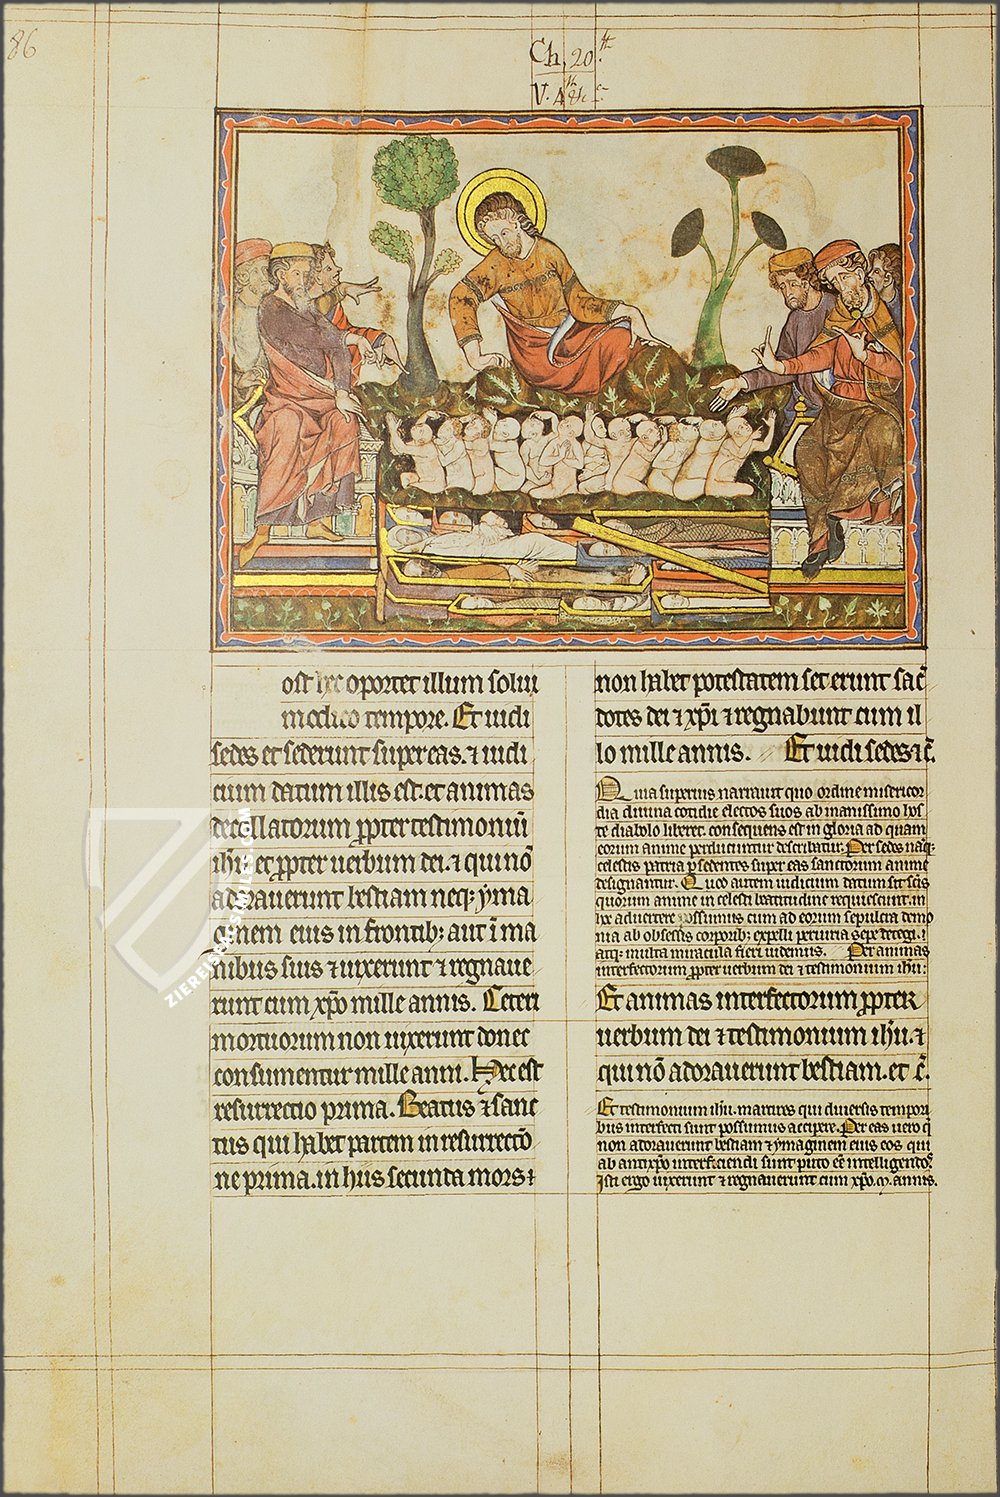 86
Ch. 20th
V. 4th &c
ost hec oportet illum solui
modico tempore. Et uidi
sedes et sederunt super eas. ⁊ iudi
cium datum illis est. et animas
decollatorum ꝓpter testimoniū
ihū et ꝓpter uerbum dei. ⁊ qui nō
adorauerunt bestiam neq; yma
ginem eius in frontib; aut ī ma
nibus suis ⁊ uixerunt ⁊ regnaue
runt cum xp̄o mille annis. Ceteri
mortuorum non uixerunt donec
consumentur mille anni. Hec est
resurrectio prima. Beatus ⁊ sanc
tus qui habet partem in resurrectō
ne prima. in hiis secunda mors ⁊
non habet potestatem set erunt sac̄
dotes dei ⁊ xp̄i ⁊ regnabunt cum il
lo mille annis. Et uidi sedes ⁊ c̄.
Quia superius narrauit quo ordine misericor
dia diuina cotidie electos suos ab inanissimo hos
te diabolo liberet. consequens est in gloria ad quam
eorum anime perducuntur describatur. Per sedes naq;
celestis patria ꝑ sedentes super eas sanctorum anime
designantur. Quod autem iudicium datum sit scīs
quorum anime in celesti beatitudine requiescunt. in
hoc aduertere possumus cum ad eorum sepulcra demo
nia ab obsessis corporib; expelli periuria sepe detegi. ⁊
atq; multa miracula fieri uidemus. Per animas
interfectorum ꝓpter uerbum dei ⁊ testimonium ihū:
Et animas interfectorum ꝓpter
uerbum dei ⁊ testimonium ihū. ⁊
qui nō adorauerunt bestiam. et c̄.
Et testimonium ihū. martires qui diuersis tempori
bus interfecti sunt possumus accipere. Per eas uero q̄
non adorauerunt bestiam ⁊ ymaginem eius eos qui
ab antixp̄o interficiendi sunt puto eē intelligendos
Isti ergo uixerunt ⁊ regnauerunt cum xp̄o. M. annis.
ZIEREIS FACSIMILES.COM